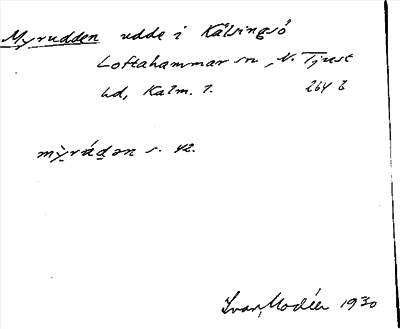 Myrudden udde i Kälsingsö
Loftahammar sn, N. Tjust
hd, Kalm. l. 264 b
my̆rúdən s. 42.
Ivar Modéer 1930